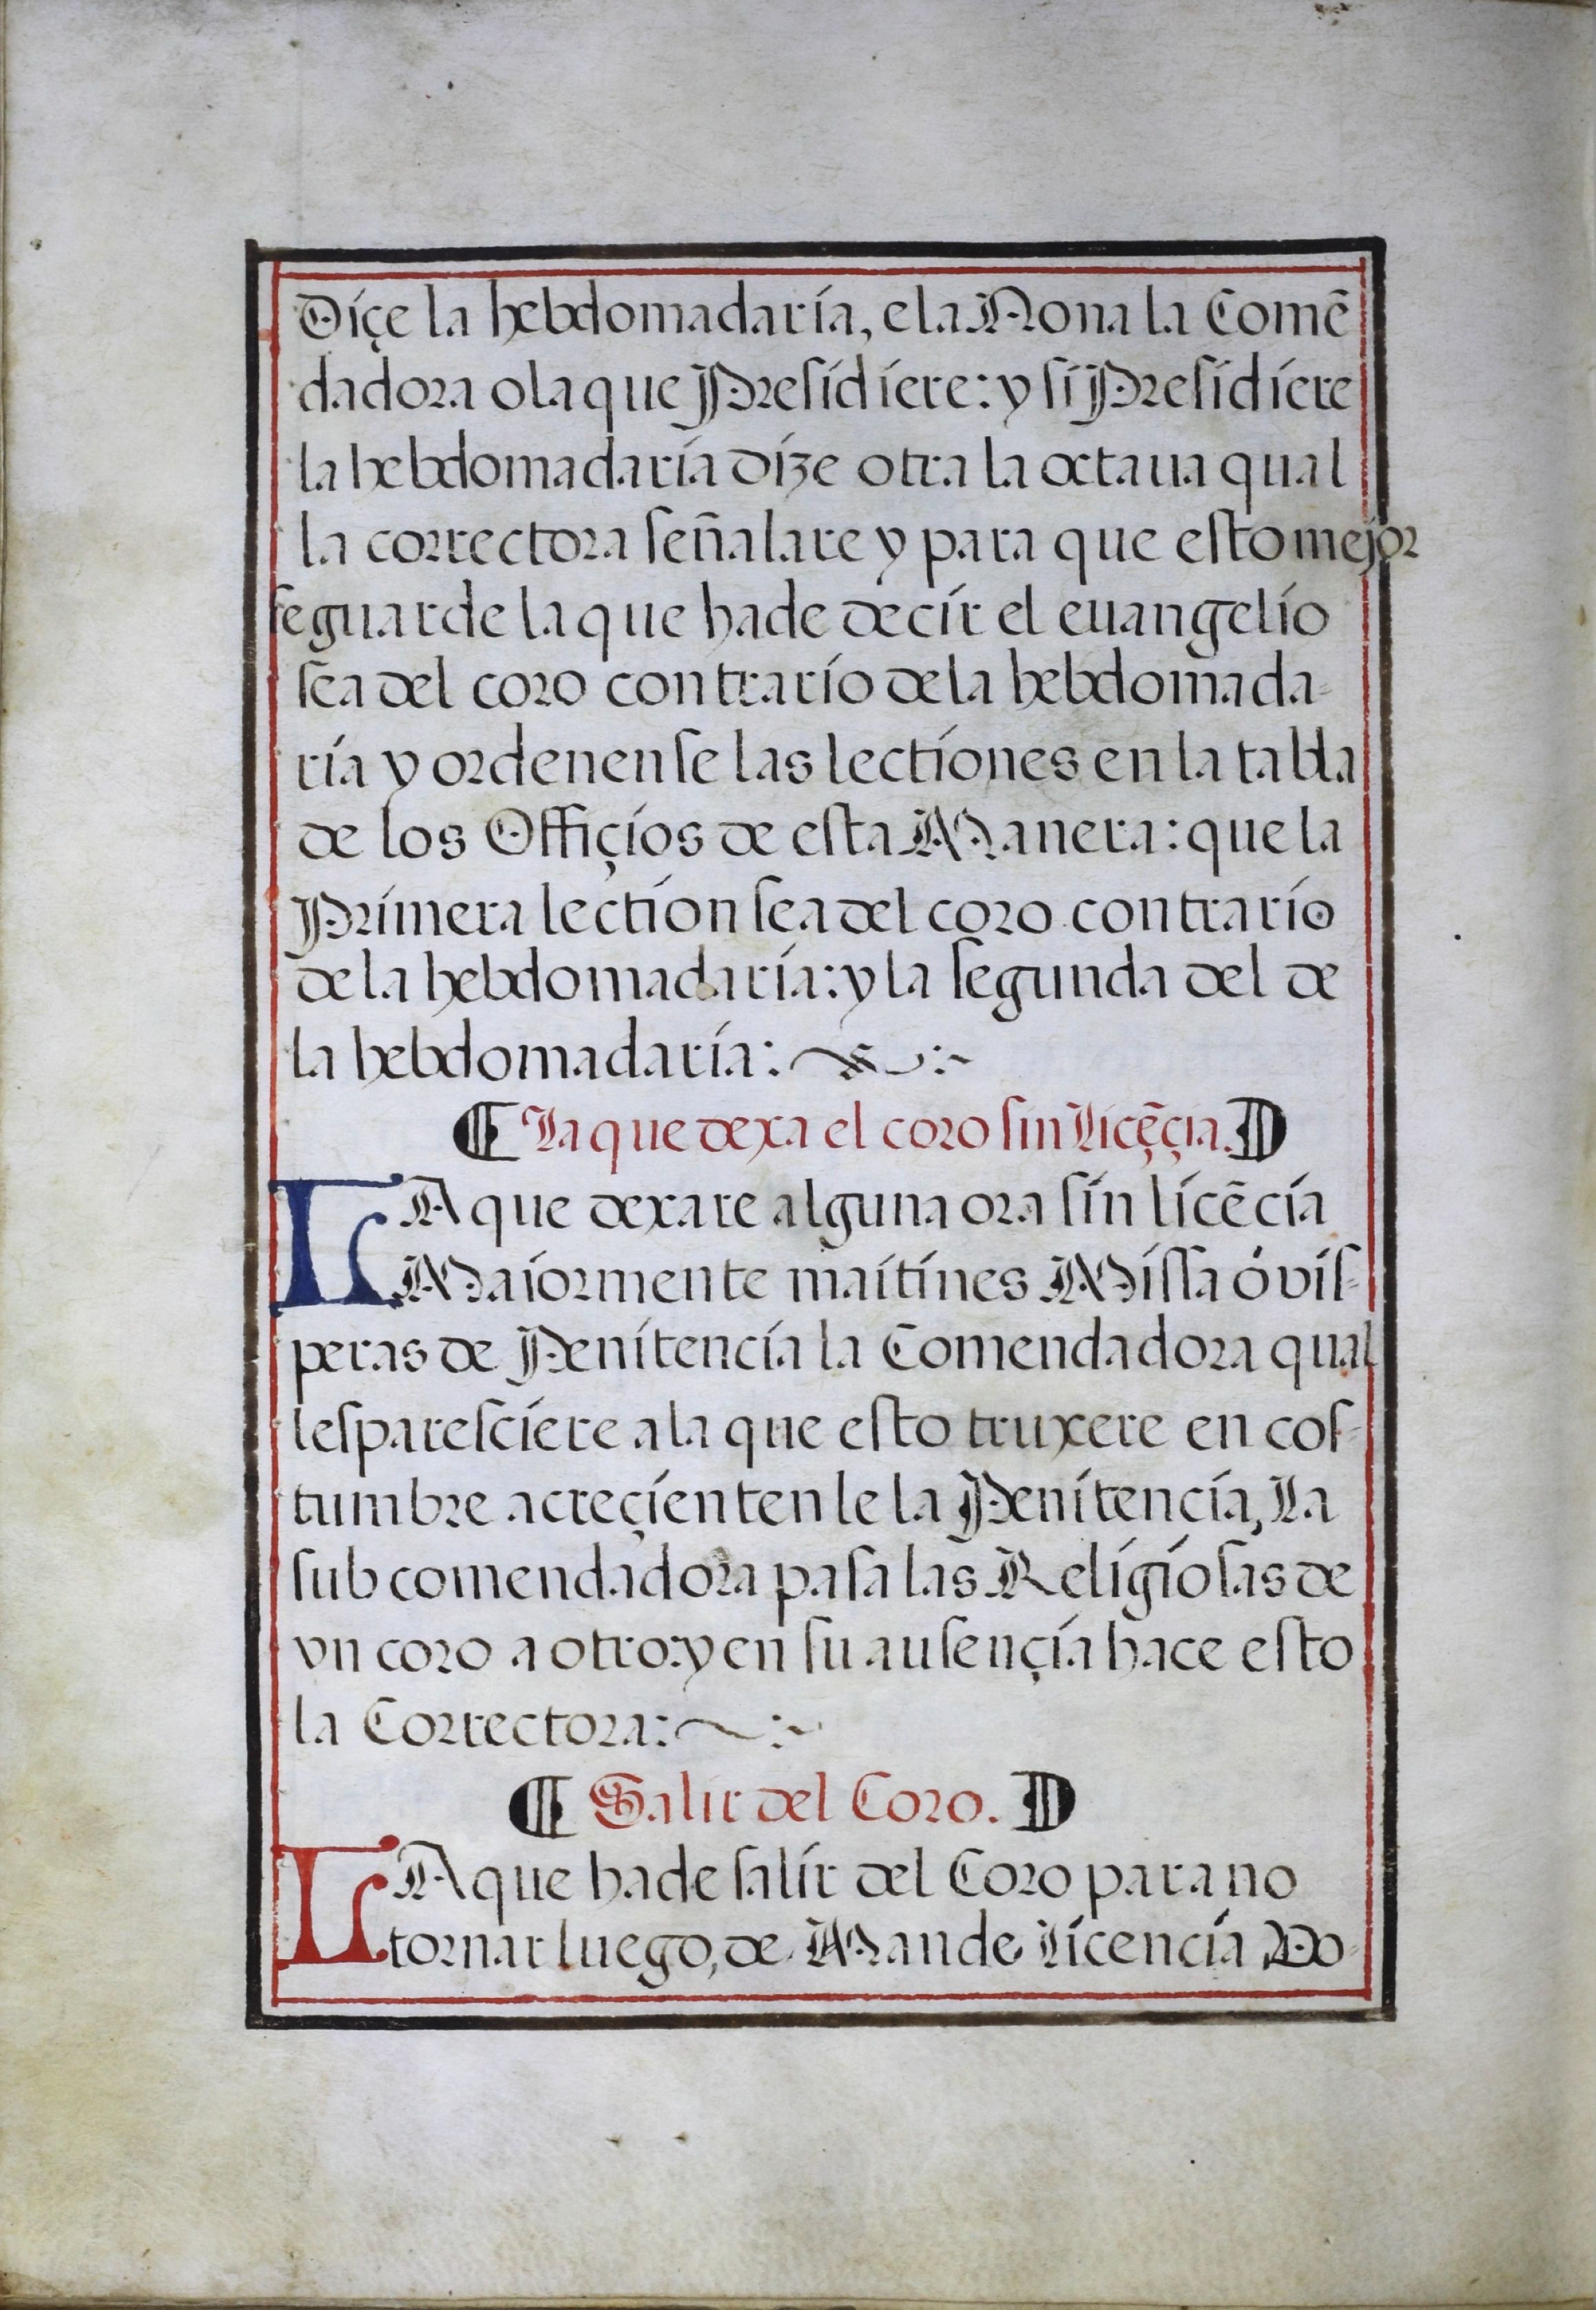 Diçe la hebdomadaria, e la Nona la Comẽ
dadora o la que Presidiere: y si Presidiere
la hebdomadaria dize otra la octaua qual
la correctora señalare y para que esto mejor
se guarde la que ha de decir el euangelio
sea del coro contrario de la hebdomada-
ria y ordenense las lectiones en la tabla
de los Offiçios de esta Manera: que la
Primera lection sea del coro contrario
de la hebdomadaria: y la segunda del de
la hebdomadaria:
La que dexa el coro sin Licẽçia.
LA que dexare alguna ora sin licẽcia
Maiormente maitines Missa ó vis-
peras de Penitencia la Comendadora qual
les paresciere a la que esto truxere en cos-
tumbre acreçienten le la Penitencia, La
sub comendadora pasa las Religiosas de
vn coro a otro: y en su ausençia hace esto
la Correctora:
Salir del Coro.
LA que ha de salir del Coro para no
tornar luego, de Mande Licencia Do-